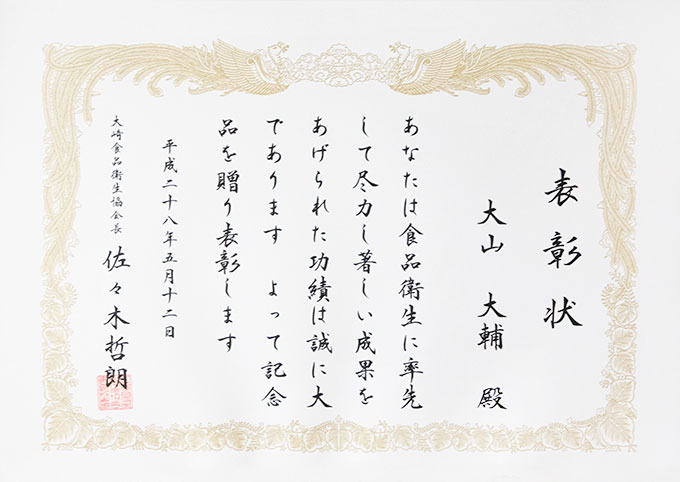 表彰状
大山 大輔 殿
あなたは食品衛生に率先
して尽力し著しい成果を
あげられた功績は誠に大
であります よって記念
品を贈り表彰します
平成二十八年五月十二日
大崎食品衛生協会長 佐々木哲朗